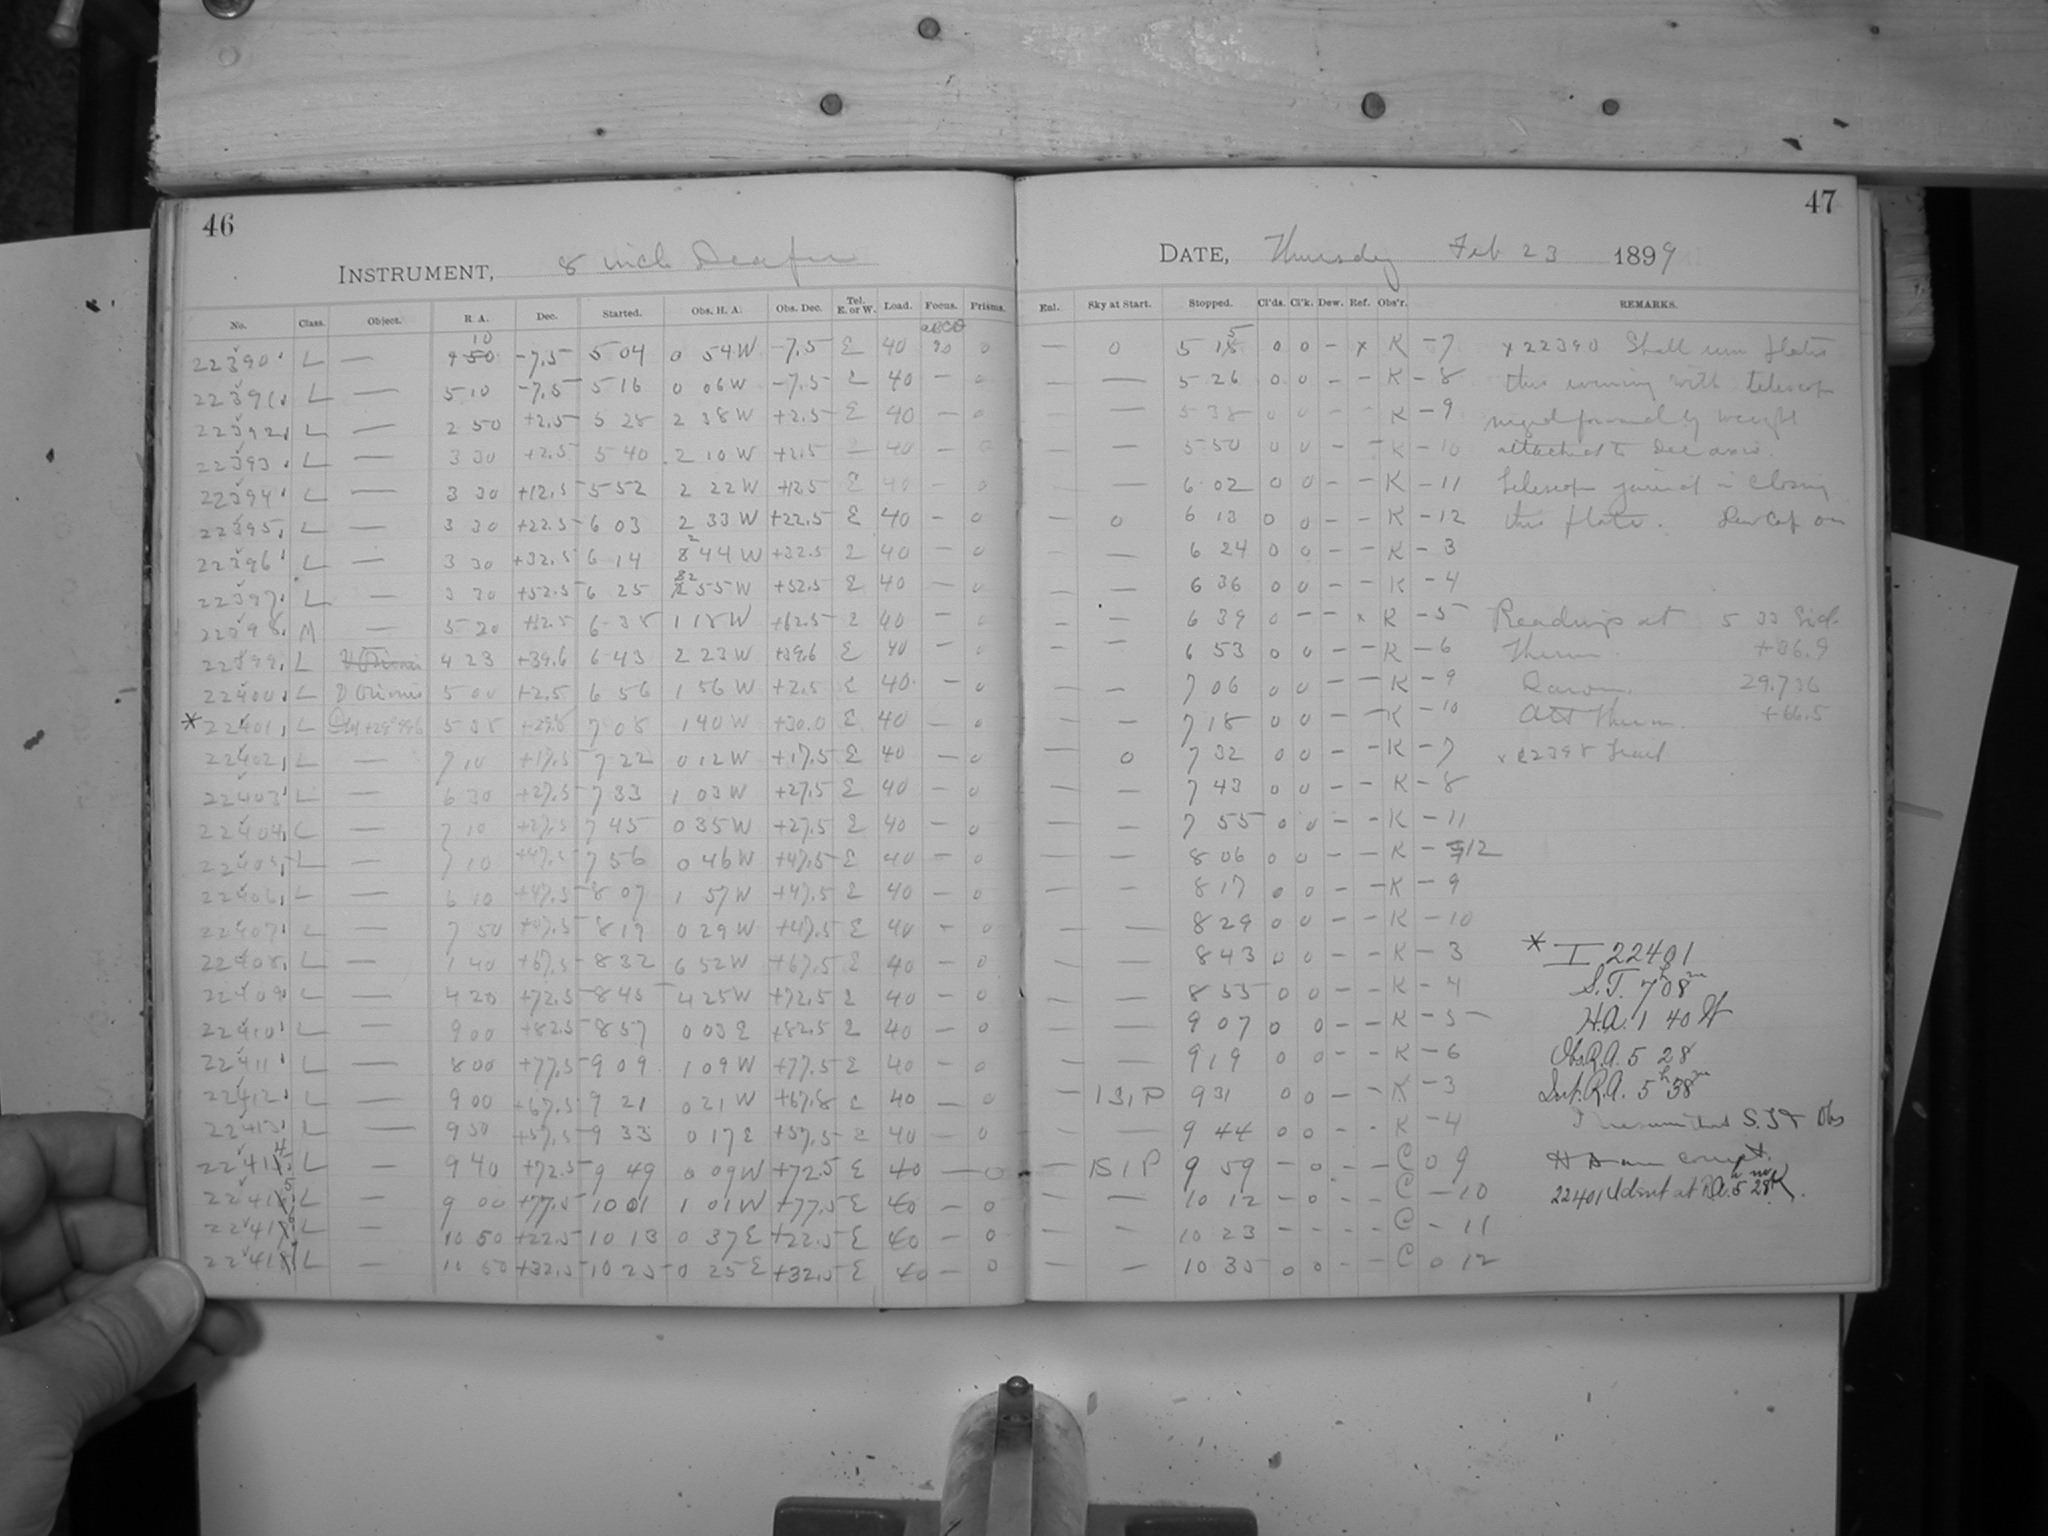 46
INSTRUMENT, 8 inch Draper
No. Class. Object. R. A. Dec. Started. Obs. H. A. Obs. Dec. Tel. E. or W. Load. Focus. Prisms.
22390 L — 10 -7.5 5 04 0 54 W -7.5 E 40 90 0
22391 L — 5 10 -7.5 5 16 0 06 W -7.5 E 40 — 0
22392 L — 2 50 +2.5 5 28 2 38 W +2.5 E 40 — 0
22393 L — 3 30 +2.5 5 40 2 10 W +2.5 — 40 — 0
22394 L — 3 30 +12.5 5 52 2 22 W +12.5 E 40
22395 L — 3 30 +22.5 6 03 2 33 W +22.5 E 40 — 0
22396 L — 3 30 +32.5 6 14 2 44 W +32.5 E 40 — 0
22397 L — 3 30 +52.5 6 25 55 W +52.5 E 40 — 0
22398 M — 5 20 +62.5 6 38 1 18 W +62.5 E 40 — 0
22399 L 4 23 +39.6 6 43 2 23 W +39.6 E 40 — 0
22400 L Orionis 5 00 +2.5 6 56 1 56 W +2.5 E 40 — 0
* 22401 L 5 28 7 08 1 40 W +30.0 E 40 — 0
22402 L — 7 10 +17.5 7 22 0 12 W +17.5 E 40 — 0
22403 L — 6 30 +27.5 7 33 1 03 W +27.5 E 40 — 0
22404 L — 7 10 +27.5 7 45 0 35 W +27.5 E 40 — 0
22405 L — 7 10 +47.5 7 56 0 46 W +47.5 E 40 — 0
22406 L — 6 10 +47.5 8 07 1 57 W +47.5 E 40 — 0
22407 L — 7 50 +47.5 8 19 0 29 W +47.5 E 40 — 0
22408 L — 1 40 +67.5 8 32 6 52 W +67.5 E 40 — 0
22409 L — 4 20 +72.5 8 45 4 25 W +72.5 E 40 — 0
22410 L — 9 00 +82.5 8 57 0 03 E +82.5 E 40 — 0
22411 L — 8 00 +77.5 9 09 1 09 W +77.5 E 40 — 0
22412 L — 9 00 +67.5 9 21 0 21 W +67.5 E 40 — 0
22413 L — 9 50 +57.5 9 33 0 17 E +57.5 E 40 — 0
22414 L — 9 40 +72.5 9 49 0 09 W +72.5 E 40 — 0
22415 L — 9 00 +77.5 10 01 1 01 W +77.5 E 40 — 0
22416 L — 10 50 +22.5 10 13 0 37 E +22.5 E 40 — 0
22417 L — 10 50 +32.5 10 25 0 25 E +32.5 E 40 — 0
47
DATE, Thursday Feb 23 1899
Enl. Sky at Start. Stopped. Cl'ds. Cl'k. Dew. Ref. Obs'r. REMARKS.
— 0 5 15 0 0 — x K -7 x 22390 Shall use plates
— — 5 26 0 0 — — K -8 this evening with telescope
— — 5 38 0 0 — — K -9 weight
— — 5 50 0 0 — — K -10 attached to Dec axis.
— — 6 02 0 0 — — K -11 Telescope in closing
— 0 6 13 0 0 — — K -12 this plate. Dew Cap on
— — 6 24 0 0 — — K -3
— — 6 36 0 0 — — K -4
— — 6 39 0 — — x K -5 Readings at 5 33 Sid.
— — 6 53 0 0 — — K -6 Therm. +36.9
— — 7 06 0 0 — — K -9 Barom. 29.736
— — 7 18 0 0 — — K -10 Att Therm. +66.5
— 0 7 32 0 0 — — K -7 x 22398 Trail
— — 7 43 0 0 — — K -8
— — 7 55 0 0 — — K -11
— — 8 06 0 0 — — K -12
— — 8 17 0 0 — — K -9
— — 8 29 0 0 — — K -10
— — 8 43 0 0 — — K -3 * I 22401
— — 8 55 0 0 — — K -4 S.T. 7h08m
— — 9 07 0 0 — — K -5 H.A. 1 40 W
— — 9 19 0 0 — — K -6 Obs. R.A. 5 28
— 9 31 0 0 — — K -3 R.A. 5h38m
— — 9 44 0 0 — — K -4 I presume that S.T. & Obs
— 9 59 — 0 — — C 0 9 H A are correct.
— — 10 12 — 0 — — C -10 22401 Ident at R.A. 5h 28m K.
— — 10 23 — — — — C -11
— — 10 35 0 0 — — C 0 12